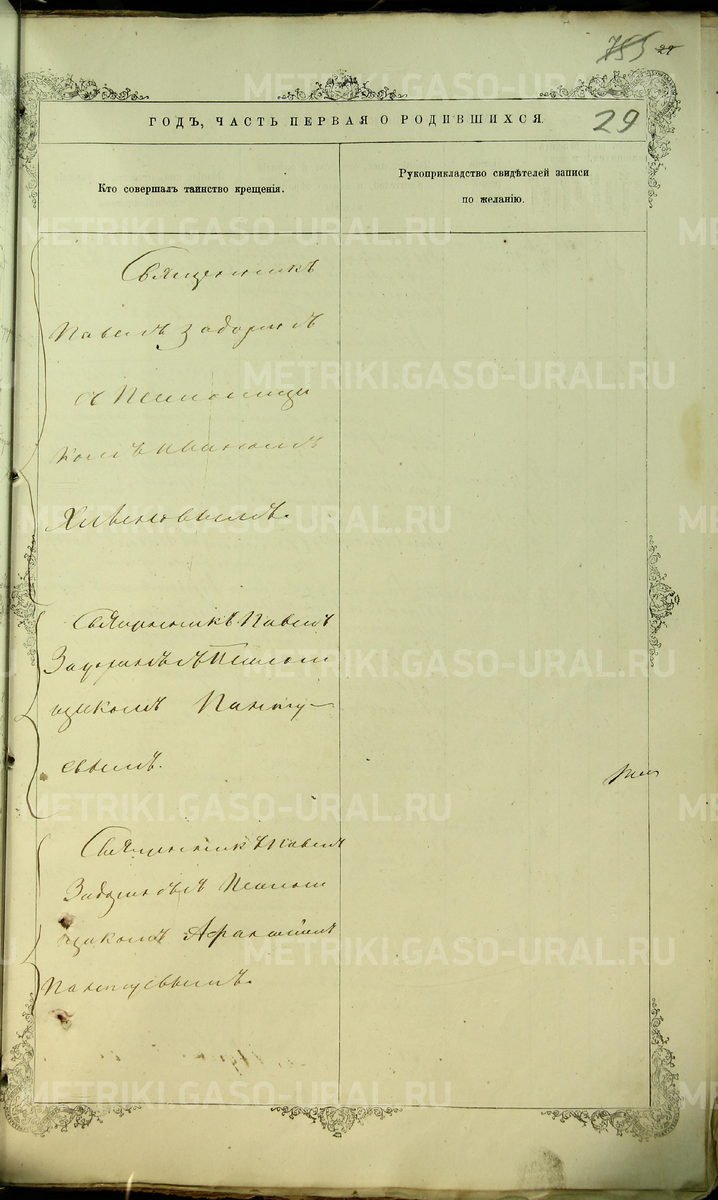 29
ГОДЪ, ЧАСТЬ ПЕРВАЯ О РОДИВШИХСЯ.
29
Кто совершалъ таинство крещенія.
Рукоприкладство свидѣтелей записи
по желанію.
Священникъ
Павелъ Задоринъ
съ Псаломщи
комъ Иваномъ
Священникъ Павелъ
Задоринъ съ Псалом
щикомъ Панту-
евымъ.
Священникъ Павелъ
Задоринъ съ Псалом
щикомъ Афанасіемъ
Пантуевымъ.
METRIKI.GASO-URAL.RU